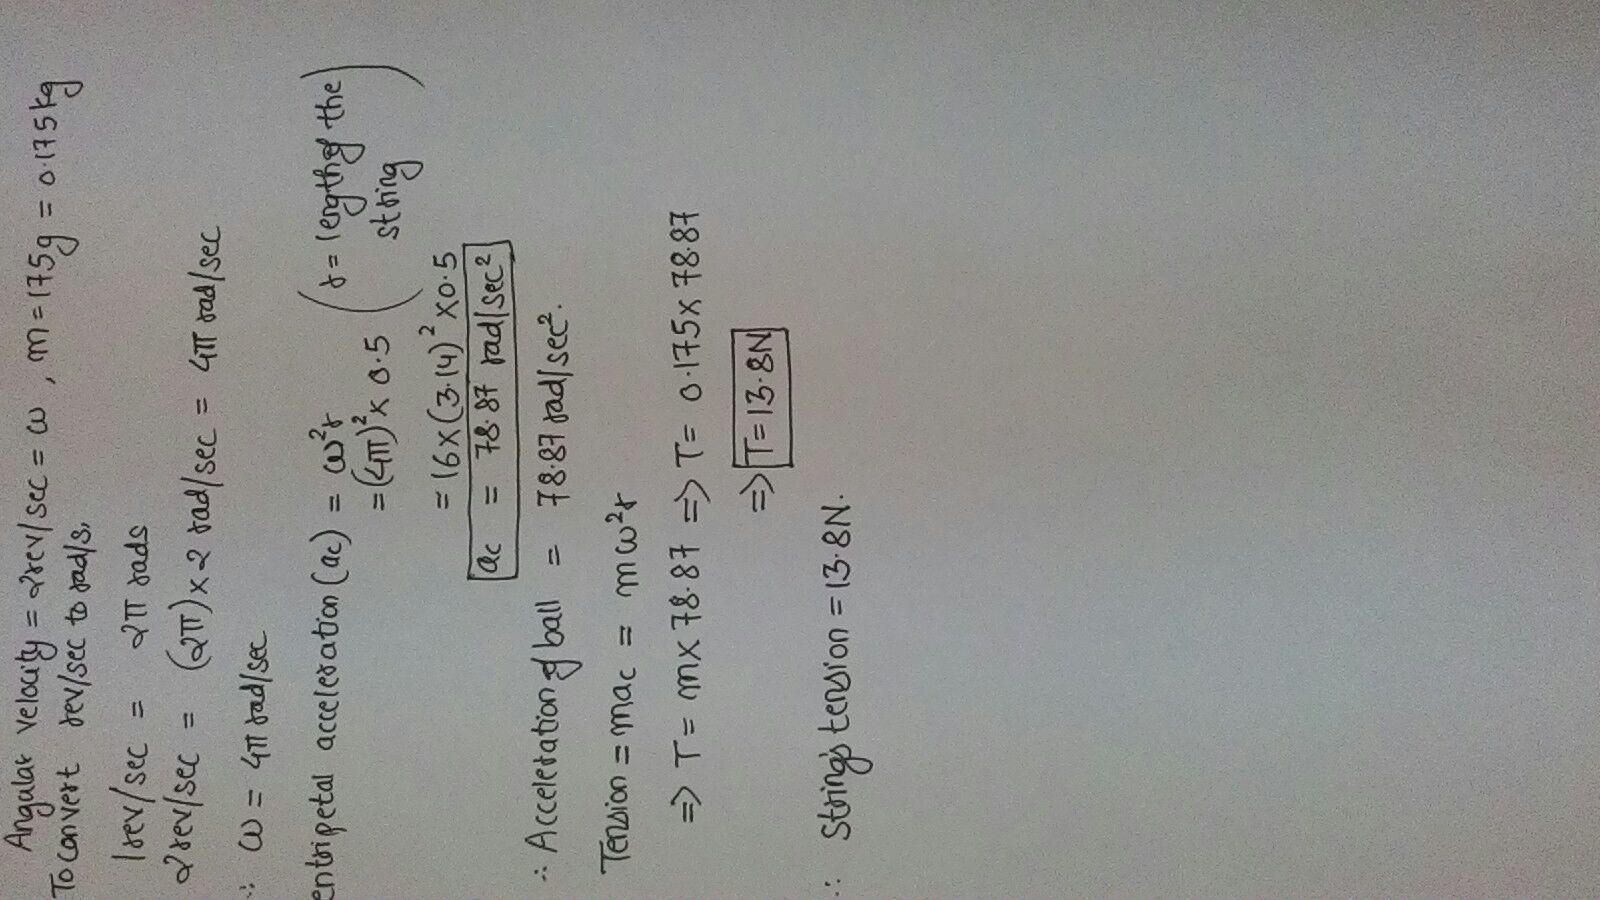 Angular velocity = 2rev/sec = ω, m = 175g = 0.175kg
To convert rev/sec to rad/s,
1rev/sec = 2π rads
2rev/sec = (2π) x 2 rad/sec = 4π rad/sec
∴ ω = 4π rad/sec
entripetal acceleration (ac) = ω²r
= (4π)² x 0.5 (r = length of the string)
= 16 x (3.14)² x 0.5
ac = 78.87 rad/sec²
∴ Acceleration of ball = 78.87 rad/sec².
Tension = mac = mω²r
=> T = m x 78.87 => T = 0.175 x 78.87
=> T = 13.8N
∴ String's tension = 13.8N.